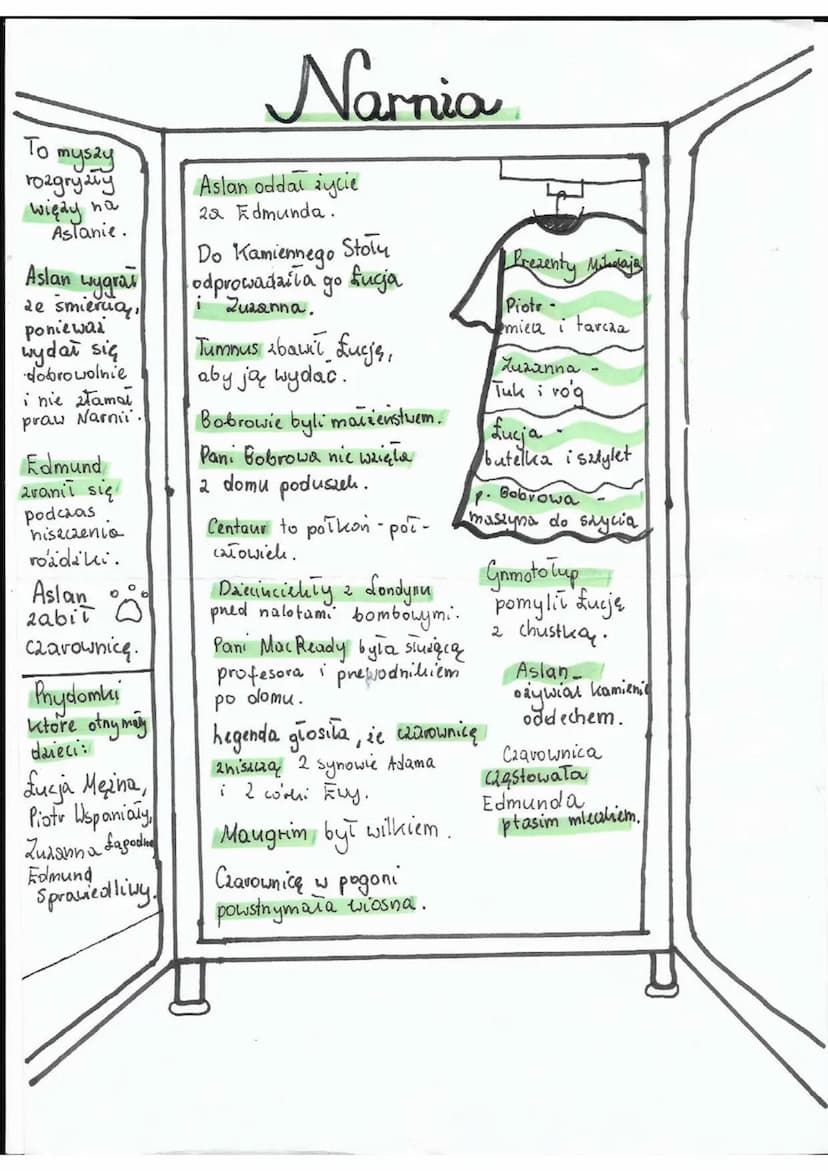 Narnia
To myszy
rozgryzły
więzy na
Aslanie.
Aslan wygrał
ze śmiercią,
ponieważ
wydał się
dobrowolnie
i nie złamał
praw Narnii.
Edmund
zranił się
podczas
niszczenia
różdżki.
Aslan
zabił
czarownicę.
Przydomki
które otrzymały
dzieci:
Łucja Mężna,
Piotr Wspaniały,
Zuzanna Łagodna,
Edmund
Sprawiedliwy.
Aslan oddał życie
za Edmunda.
Do Kamiennego Stołu
odprowadziła go Łucja
i Zuzanna.
Tumnus zbawił Łucję,
aby ją wydać.
Bobrowie byli małżeństwem.
Pani Bobrowa nie wzięła
z domu poduszek.
Centaur to półkoń - pół-
człowiek.
Dzieci uciekły z Londynu
przed nalotami bombowymi.
Pani MacReady była służącą
profesora i przewodnikiem
po domu.
Legenda głosiła, że czarownicę
zniszczą 2 synowie Adama
i 2 córki Ewy.
Maugrim był wilkiem.
Czarownicę w pogoni
powstrzymała wiosna.
Prezenty Mikołaja
Piotr -
miecz i tarcza
Zuzanna -
Łuk i róg
Łucja -
butelka i sztylet
p. Bobrowa -
maszyna do szycia
Grzmotołup
pomylił Łucję
z chustką.
Aslan
ożywiał kamienie
oddechem.
Czarownica
częstowała
Edmunda
ptasim mleczkiem.